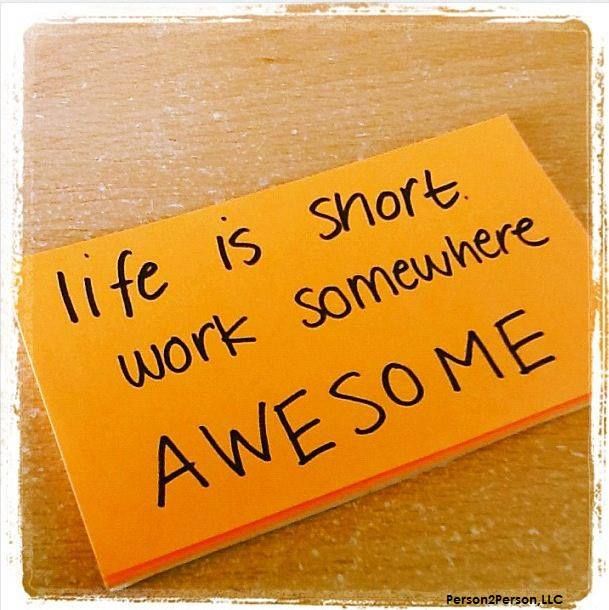 life is short.
work somewhere
AWESOME
Person2Person,LLC